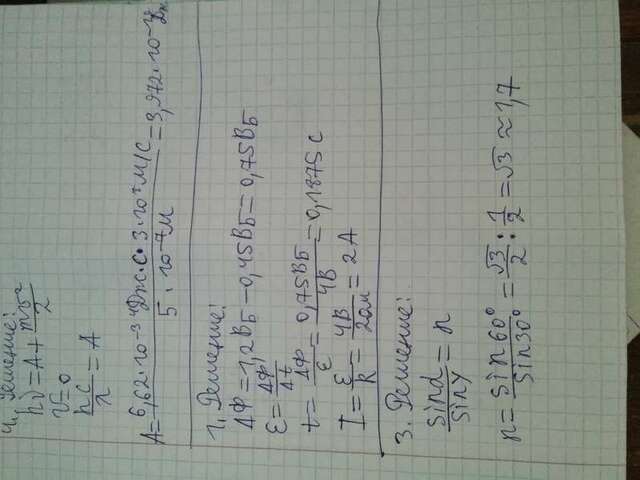 4. Решение:
hν = A + mv²/2
v = 0
hc/λ = A
A = 6,62·10⁻³⁴Дж·с·3·10⁸м/с / 5·10⁻⁷м = 3,972·10⁻¹⁹Дж
1. Решение:
ΔФ = 1,2Вб - 0,45Вб = 0,75Вб
ε = ΔФ/Δt
t = ΔФ/ε = 0,75Вб/4В = 0,1875 с
I = ε/R = 4В/2Ом = 2А
3. Решение:
sinα/sinγ = n
n = sin60°/sin30° = √3/2 : 1/2 = √3 ≈ 1,7